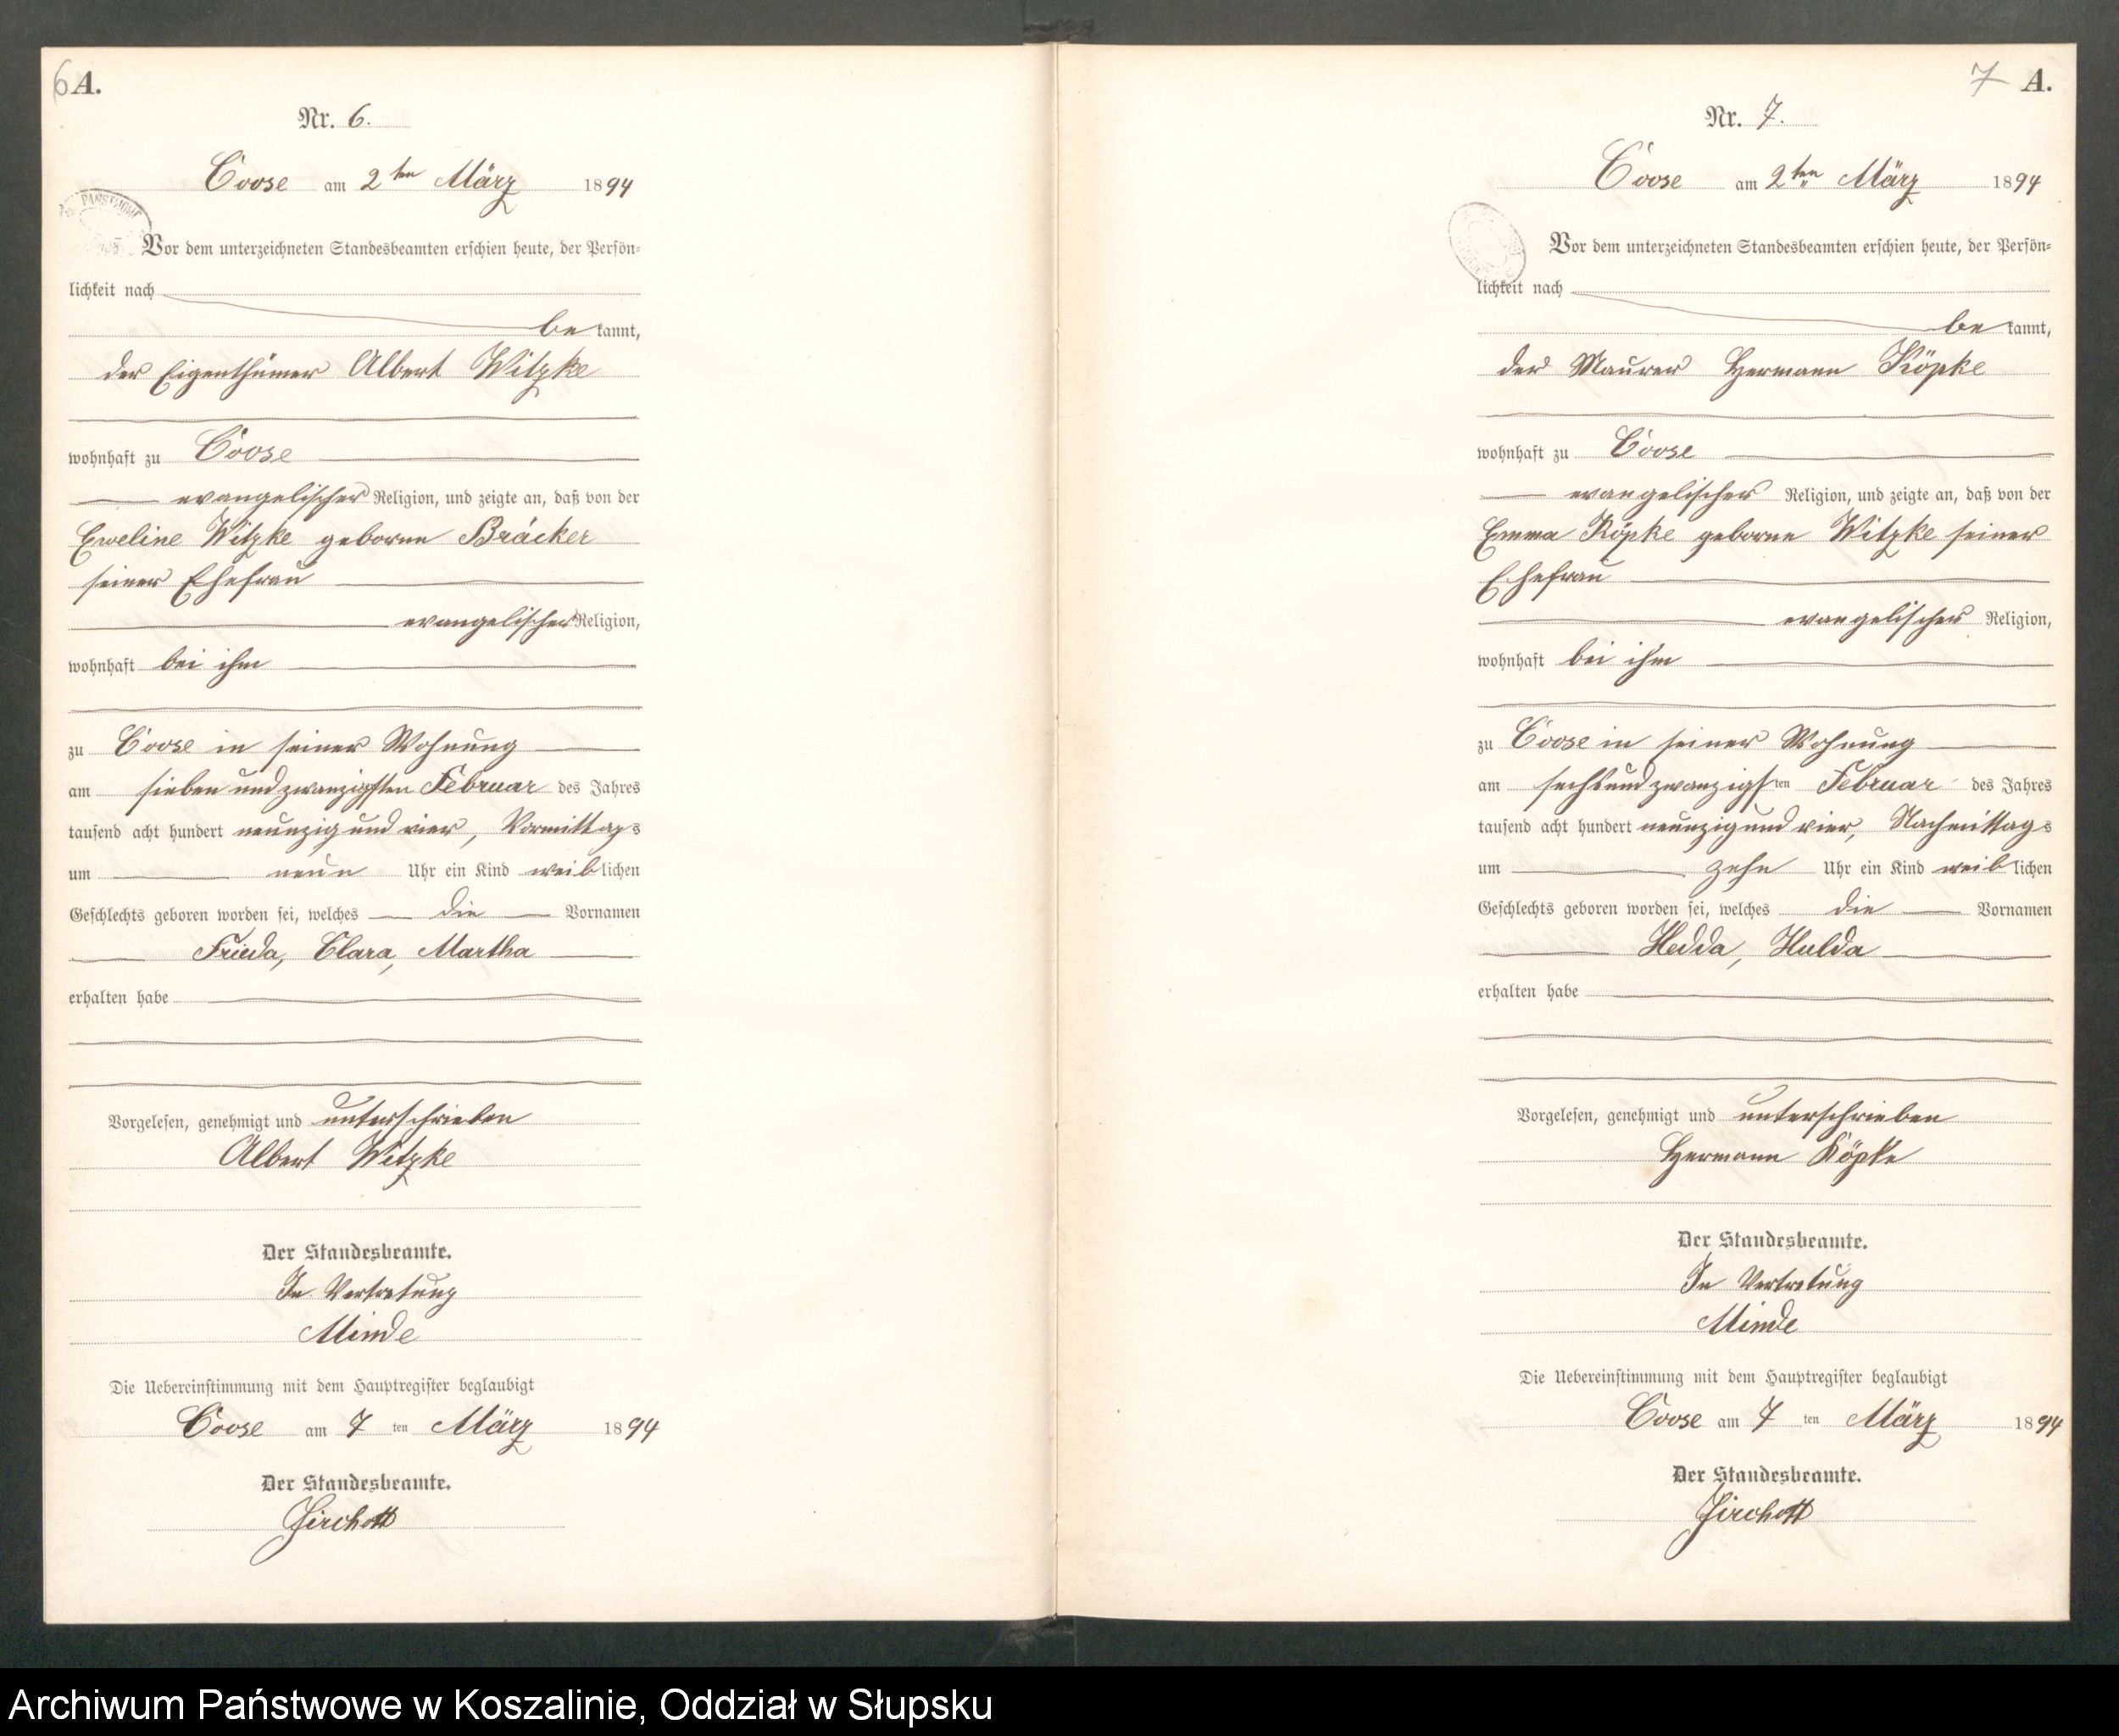 6 A.
Nr. 6.
Coose am 2ten März 1894
PAŃSTWOWE
Vor dem unterzeichneten Standesbeamten erschien heute, der Persön=
lichkeit nach
be kannt,
der Eigenthümer Albert Witzke
wohnhaft zu Coose
evangelischer Religion, und zeigte an, daß von der
Eweline Witzke geborne Bräcker
seiner Ehefrau
evangelischer Religion,
wohnhaft bei ihm
zu Coose in seiner Wohnung
am sieben und zwanzigsten Februar des Jahres
tausend acht hundert neunzig und vier, Vormittags
um neun Uhr ein Kind weiblichen
Geschlechts geboren worden sei, welches die Vornamen
Frieda, Clara, Martha
erhalten habe
Vorgelesen, genehmigt und unterschrieben
Albert Witzke
Der Standesbeamte.
In Vertretung
Minde
Die Uebereinstimmung mit dem Hauptregister beglaubigt
Coose am 7 ten März 1894
Der Standesbeamte.
7 A.
Nr. 7.
Coose am 2ten März 1894
Vor dem unterzeichneten Standesbeamten erschien heute, der Persön=
lichkeit nach
be kannt,
der Maurer Hermann Köpke
wohnhaft zu Coose
evangelischer Religion, und zeigte an, daß von der
Emma Köpke geborne Witzke seiner
Ehefrau
evangelischer Religion,
wohnhaft bei ihm
zu Coose in seiner Wohnung
am sechsundzwanzigsten Februar des Jahres
tausend acht hundert neunzig und vier, Nachmittags
um zehn Uhr ein Kind weiblichen
Geschlechts geboren worden sei, welches die Vornamen
Hedda, Hulda
erhalten habe
Vorgelesen, genehmigt und unterschrieben
Hermann Köpke
Der Standesbeamte.
In Vertretung
Minde
Die Uebereinstimmung mit dem Hauptregister beglaubigt
Coose am 7 ten März 1894
Der Standesbeamte.
Archiwum Państwowe w Koszalinie, Oddział w Słupsku